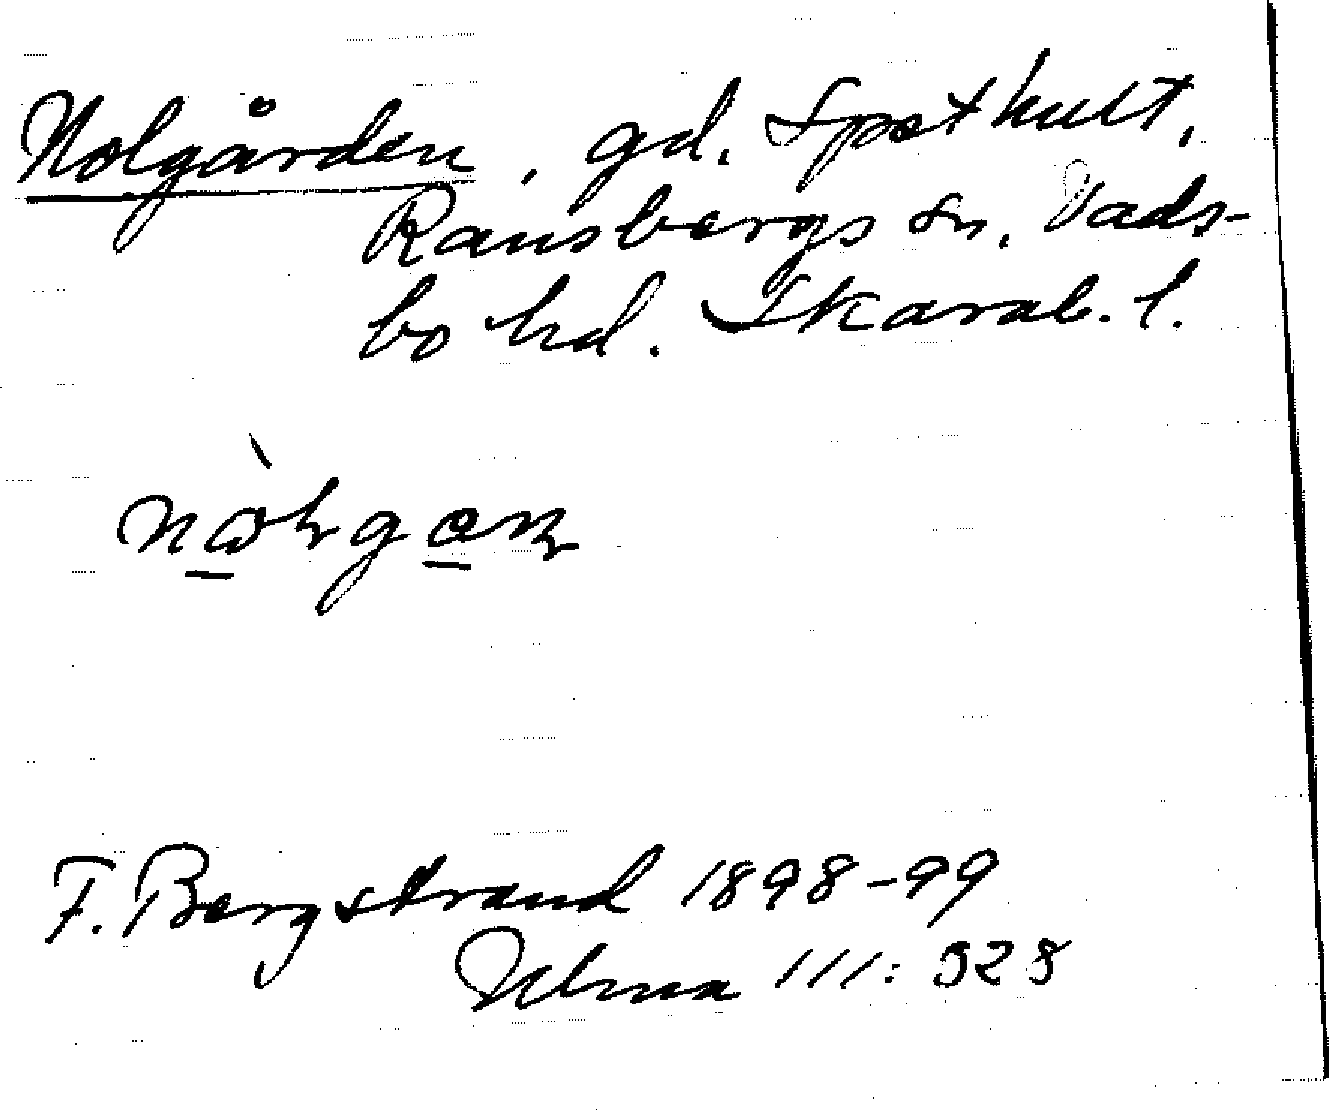 Nolgården, gd. Spethult,
Ransbergs sn, Vads-
bo hd. Skarab. l.
F. Bergstrand 1898-99
Ulma 111: 328